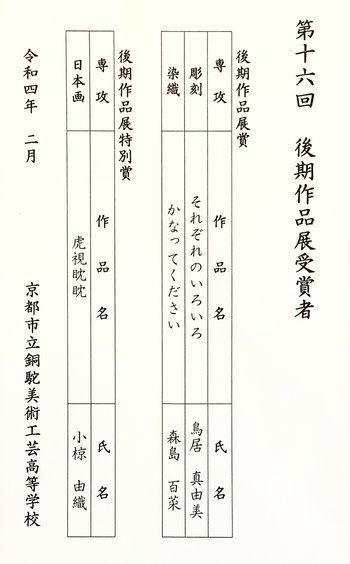 第十六回 後期作品展受賞者
後期作品展賞
専攻 作品名 氏名
彫刻 それぞれのいろいろ 鳥居 真由美
染織 かなってください 森島 百菜
後期作品展特別賞
専攻 作品名 氏名
日本画 虎視眈眈 小椋 由織
令和四年 二月 京都市立銅駝美術工芸高等学校